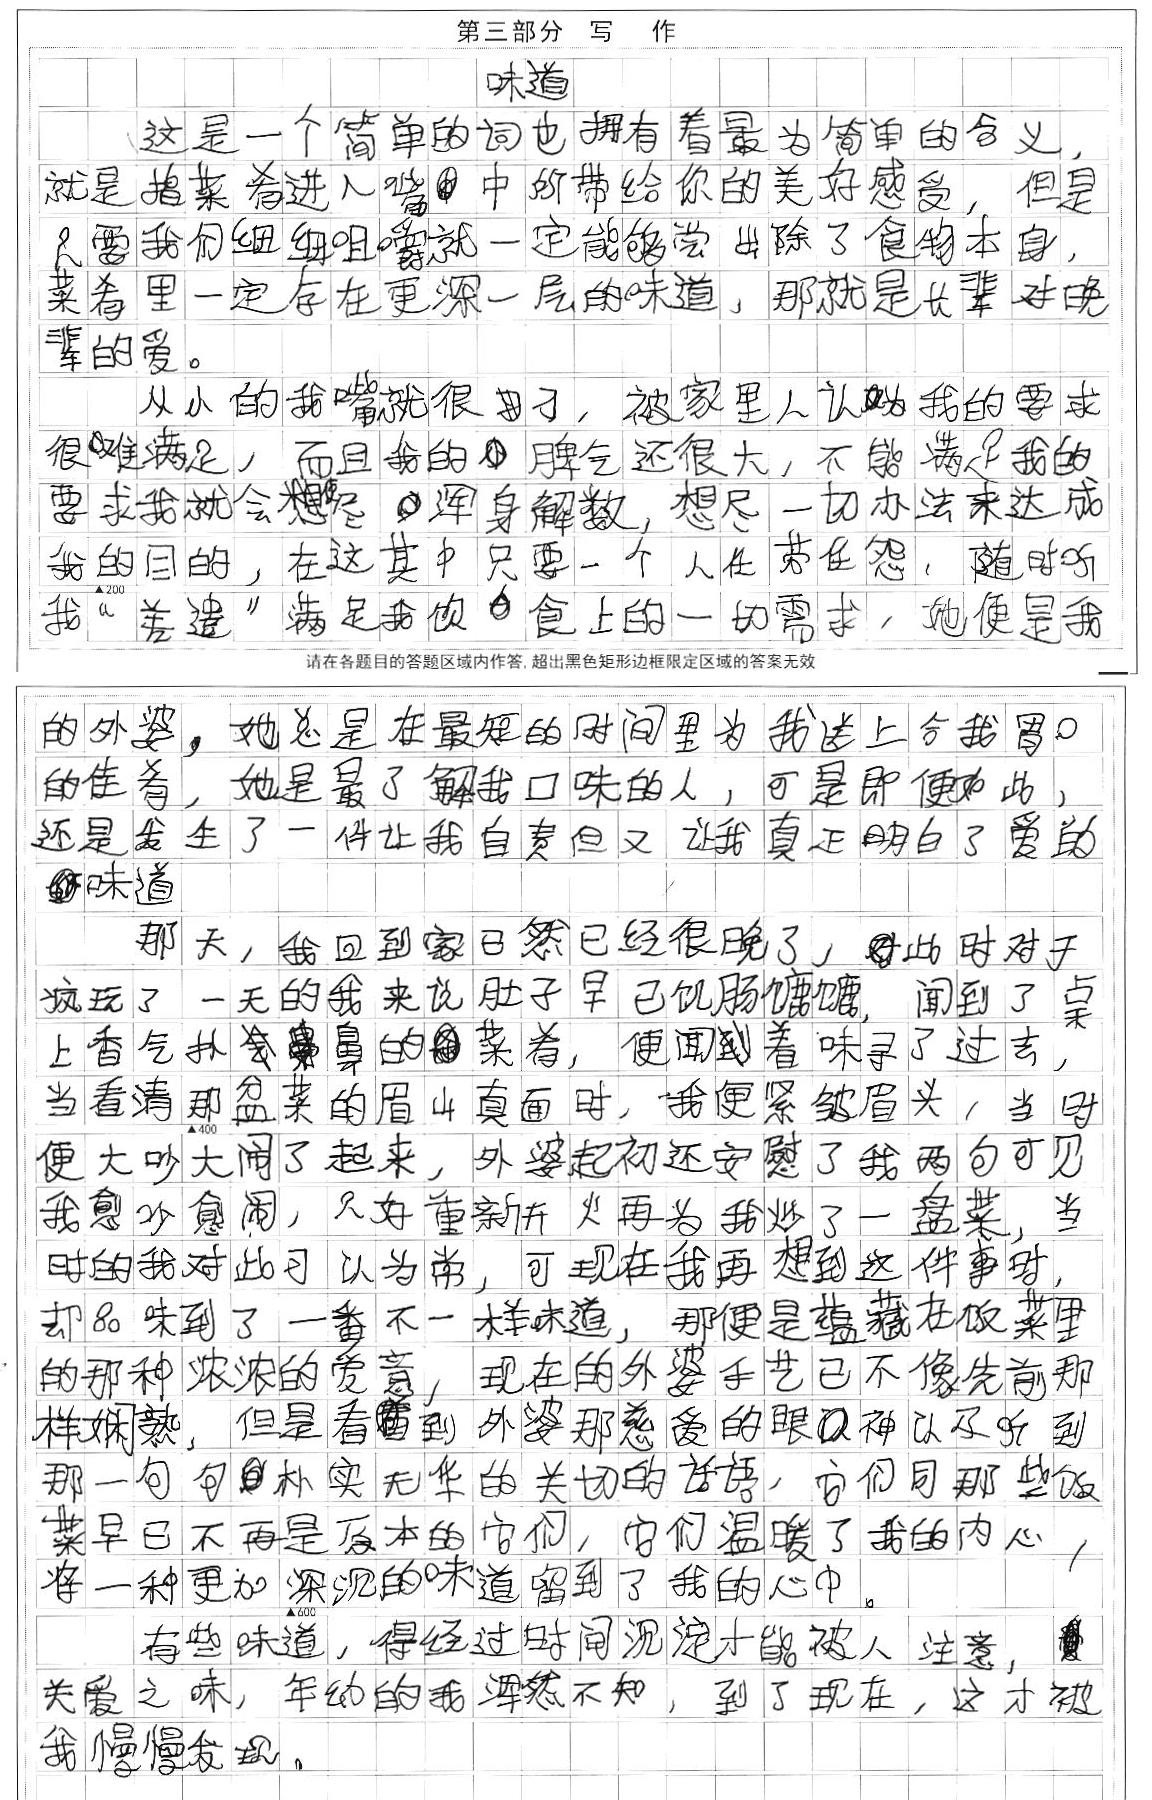 第三部分 写 作
味道
这是一个简单的词也拥有着最为简单的含义，
就是指菜肴进入嘴中所带给你的美好感受，但是
只要我们细细咀嚼就一定能够尝出除了食物本身，
菜肴里一定存在更深一层的味道，那就是长辈对晚
辈的爱。
从小的我嘴就很刁，被家里人认为我的要求
很难满足，而且我的脾气还很大，不能满足我的
要求我就会想尽浑身解数，想尽一切办法来达成
我的目的，在这其中只要一个人任劳任怨，随时听
▲200
我“差遣”满足我饮食上的一切需求，她便是我
请在各题目的答题区域内作答,超出黑色矩形边框限定区域的答案无效
的外婆，她总是在最短的时间里为我送上合我胃口
的佳肴，她是最了解我口味的人，可是即便如此，
还是发生了一件让我自责但又让我真正明白了爱的
味道
那天，我回到家已然已经很晚了，此时对于
疯玩了一天的我来说肚子早已饥肠辘辘，闻到了桌
上香气扑鼻的菜肴，便闻到着味寻了过去，
当看清那盆菜的眉山真面时，我便紧皱眉头，当时
▲400
便大吵大闹了起来，外婆起初还安慰了我两句可见
我愈吵愈闹，只好重新开火再为我炒了一盘菜，当
时的我对此习以为常，可现在我再想到这件事时，
却品味到了一番不一样味道，那便是蕴藏在饭菜里
的那种浓浓的爱意，现在的外婆手艺已不像先前那
样娴熟，但是看到外婆那慈爱的眼神以及听到
那一句句朴实无华的关切的话语，它们同那些饭
菜早已不再是原本的它们，它们温暖了我的内心，
将一种更加深沉的味道留到了我的心中。
▲600
有些味道，得经过时间沉淀才能被人注意，
关爱之味，年幼的我浑然不知，到了现在，这才被
我慢慢发现。